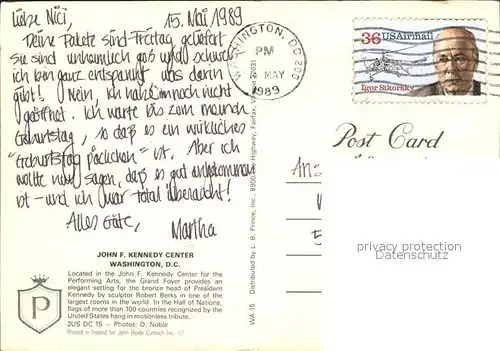 Liebe Nici, 15. Mai 1989
Deine Pakete sind Freitag geliefert
Sie sind unheimlich groß und schwer
ich bin ganz entspannt was darin
gibt! Nein, ich habe noch nicht
geöffnet. Ich warte bis zum
Geburtstag, so daß es ein wirkliches
"Geburtstag päckchen" ist. Aber ich
wollte nur sagen, daß es gut angekommen
ist - und ich war total überrascht!
Alles Gute,
Martha
JOHN F. KENNEDY CENTER
WASHINGTON, D.C.
Located in the John F. Kennedy Center for the
Performing Arts, the Grand Foyer provides an
elegant setting for the bronze head of President
Kennedy by sculptor Robert Berks in one of the
largest rooms in the world. In the Hall of Nations,
flags of more than 100 countries recognized by the
United States hang in motionless tribute.
2US DC 15 - Photos: D. Noble
Printed in Ireland for John Hinde Curteich Inc. ©
P
WA 15 Distributed by L. B. Prince, Inc., 8900 Highway, Fairfax, Va. 22031
WASHINGTON, DC 200
PM
MAY
1989
36 USAirmail
Igor Sikorsky
Post Card
privacy protection
Datenschutz